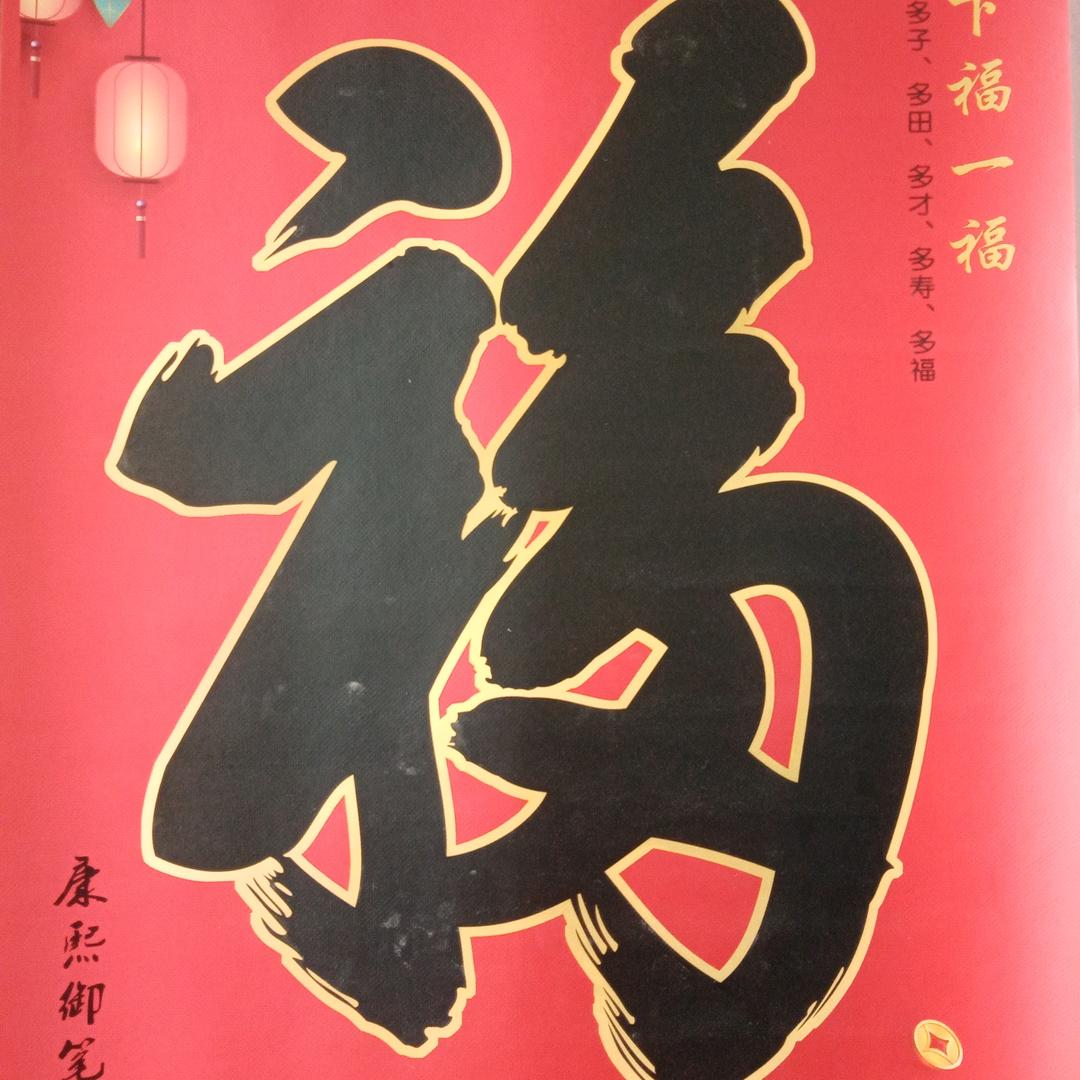 福一福
多子、多田、多才、多寿、多福
福
康熙御笔